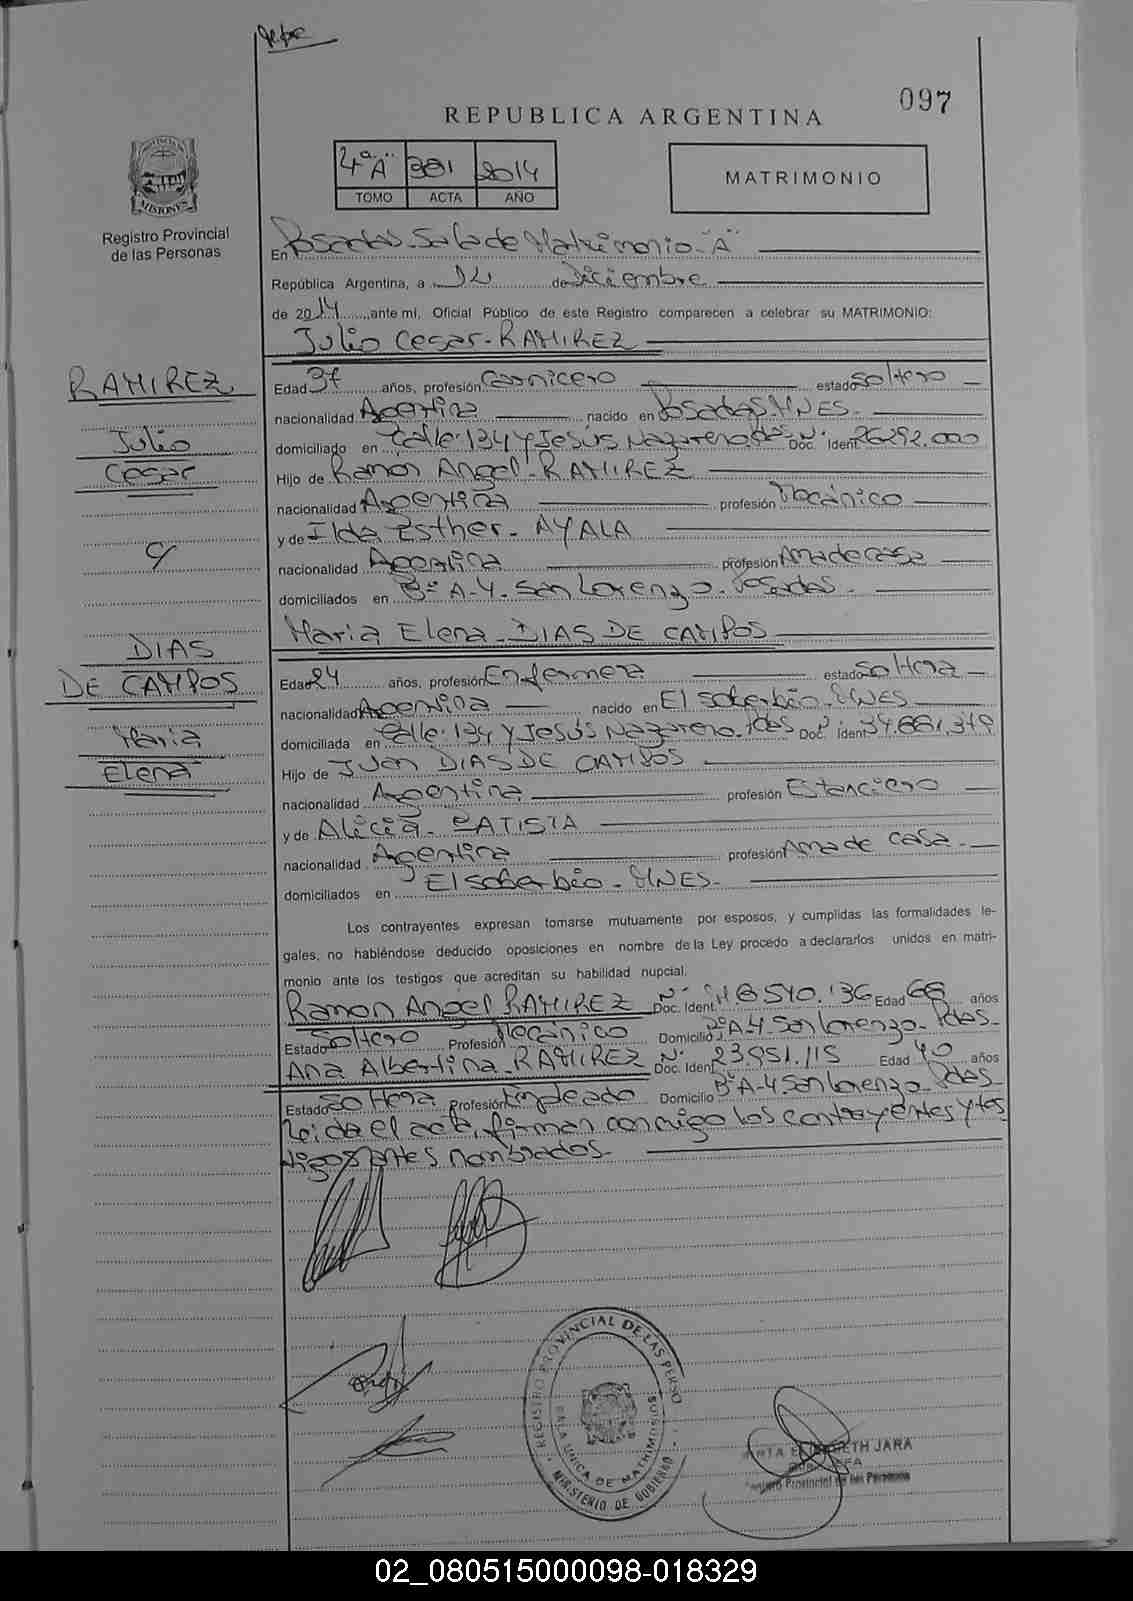 097
REPUBLICA ARGENTINA
4º "A" 381 2014
TOMO ACTA AÑO
MATRIMONIO
PROVINCIA DE
MISIONES
Registro Provincial
de las Personas
En Posadas-Sala de Matrimonio-"A"
República Argentina, a 12 de Diciembre
de 2014, ante mí, Oficial Público de este Registro comparecen a celebrar su MATRIMONIO:
Julio Cesar-RAMIREZ
RAMIREZ
Julio
Cesar
c/
DIAS
DE CAMPOS
Maria
Elena
Edad 37 años, profesión Carnicero estado soltero
nacionalidad Argentina nacido en Posadas. MNES.
domiciliado en Calle:134 y Jesús Nazareno. Pdas Doc. Ident. Nº 26292.000
Hijo de Ramon Angel-RAMIREZ
nacionalidad Argentina profesión Mecánico
y de Ilda Esther-AYALA
nacionalidad Argentina profesión Ama de casa
domiciliados en Bº A-4. San Lorenzo. Posadas.
Maria Elena-DIAS DE CAMPOS
Edad 24 años, profesión Enfermera estado soltera
nacionalidad Argentina nacido en El soberbio. MNES
domiciliada en Calle:134 y Jesús Nazareno. Pdas Doc. Ident. 34.661.
Hijo de Juan DIAS DE CAMPOS
nacionalidad Argentina profesión Estanciero
y de Alicia-BATISTA
nacionalidad Argentina profesión Ama de casa
domiciliados en El soberbio-MNES.
Los contrayentes expresan tomarse mutuamente por esposos, y cumplidas las formalidades le-
gales, no habiéndose deducido oposiciones en nombre de la Ley procedo a declararlos unidos en matri-
monio ante los testigos que acreditan su habilidad nupcial.
Ramon Angel RAMIREZ Doc. Ident. Nº 8540.136 Edad 68 años
Estado Soltero Profesión Mecánico Domicilio Bº A-4-San Lorenzo-Pdas-
Ana Albertina-RAMIREZ Doc. Ident. Nº 23.951.115 Edad 40 años
Estado Soltera Profesión Empleado Domicilio Bº A-4-San Lorenzo-Pdas
Leida el acta, firman conmigo los contrayentes y tes
tigos antes nombrados-
REGISTRO PROVINCIAL DE LAS PERSO
SALA UNICA DE MATRIMONIOS
MINISTERIO DE GOBIERNO
JARA
Registro Provincial de las Personas
02_080515000098-018329